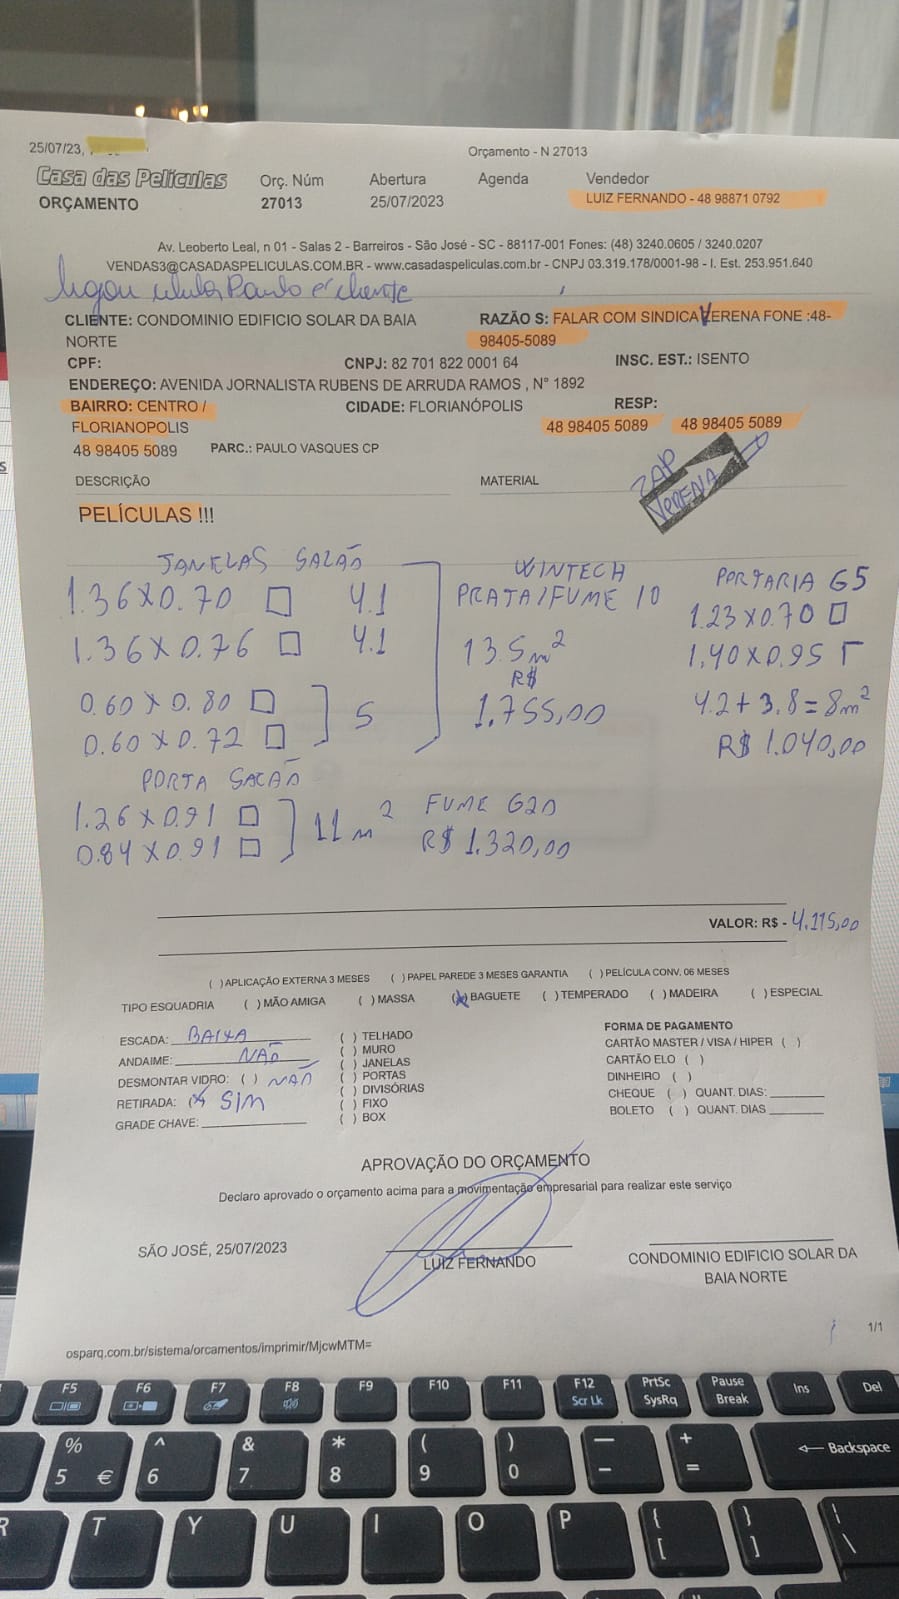 25/07/23,
Orçamento - N 27013
Casa das Películas
ORÇAMENTO
Orç. Núm
27013
Abertura
25/07/2023
Agenda
Vendedor
LUIZ FERNANDO - 48 98871 0792
Av. Leoberto Leal, n 01 - Salas 2 - Barreiros - São José - SC - 88117-001 Fones: (48) 3240.0605 / 3240.0207
VENDAS3@CASADASPELICULAS.COM.BR - www.casadaspeliculas.com.br - CNPJ 03.319.178/0001-98 - I. Est. 253.951.640
ligou Paulo é cliente
CLIENTE: CONDOMINIO EDIFICIO SOLAR DA BAIA
NORTE
RAZÃO S: FALAR COM SINDICA VERENA FONE :48-
98405-5089
CPF:
CNPJ: 82 701 822 0001 64
INSC. EST.: ISENTO
ENDEREÇO: AVENIDA JORNALISTA RUBENS DE ARRUDA RAMOS , N° 1892
BAIRRO: CENTRO /
FLORIANOPOLIS
CIDADE: FLORIANÓPOLIS
RESP:
48 98405 5089
48 98405 5089
48 98405 5089
PARC.: PAULO VASQUES CP
DESCRIÇÃO
MATERIAL
ZAP
VERENA
PELÍCULAS !!!
JANELAS SALÃO
1.36X0.70 □ 4.1
1.36X0.76 □ 4.1
0.60X0.80 □
0.60X0.72 □
5
WINTECH
PRATA/FUME 10
13.5m²
R$
1.755,00
PORTARIA G5
1.23X0.70 □
1.40X0.95
4.2+3.8=8m²
R$ 1.040,00
PORTA SALÃO
1.26X0.91 □
0.84X0.91 □
11 m²
FUME G20
R$ 1.320,00
VALOR: R$ - 4.115,00
( ) APLICAÇÃO EXTERNA 3 MESES ( ) PAPEL PAREDE 3 MESES GARANTIA ( ) PELÍCULA CONV. 06 MESES
TIPO ESQUADRIA ( ) MÃO AMIGA ( ) MASSA (X) BAGUETE ( ) TEMPERADO ( ) MADEIRA ( ) ESPECIAL
ESCADA: BAIXA
ANDAIME: NÃO
DESMONTAR VIDRO: ( ) NÃO
RETIRADA: (X SIM
GRADE CHAVE:
( ) TELHADO
( ) MURO
( ) JANELAS
( ) PORTAS
( ) DIVISÓRIAS
( ) FIXO
( ) BOX
FORMA DE PAGAMENTO
CARTÃO MASTER / VISA / HIPER ( )
CARTÃO ELO ( )
DINHEIRO ( )
CHEQUE ( ) QUANT. DIAS:
BOLETO ( ) QUANT. DIAS
APROVAÇÃO DO ORÇAMENTO
Declaro aprovado o orçamento acima para a movimentação empresarial para realizar este serviço
SÃO JOSÉ, 25/07/2023
LUIZ FERNANDO
CONDOMINIO EDIFICIO SOLAR DA
BAIA NORTE
1/1
osparq.com.br/sistema/orcamentos/imprimir/MjcwMTM=
F5 F6 F7 F8 F9 F10 F11 F12 PrtSc Pause Ins Del
Scr Lk SysRq Break
% ^ & * ( ) — + Backspace
5 € 6 7 8 9 0 - =
R T Y U I O P { } |
[ ] \